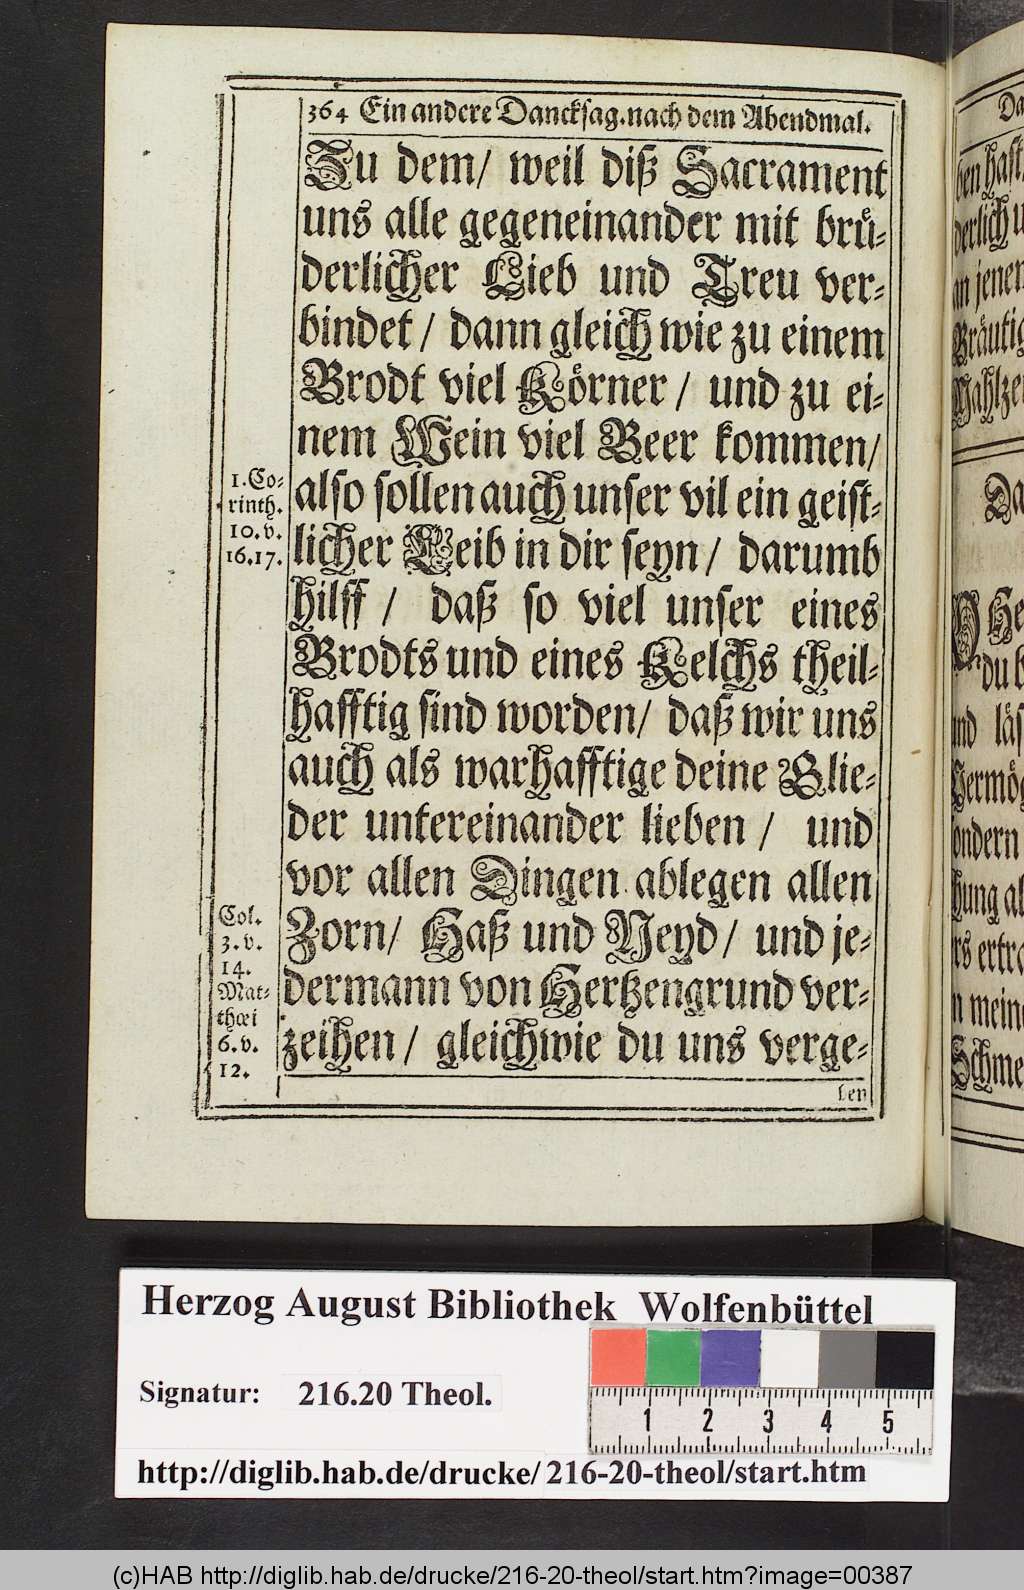 364 Ein andere Dancksag. nach dem Abendmal.
Zu dem/ weil diß Sacrament
uns alle gegeneinander mit bruͤ-
derlicher Lieb und Treu ver-
bindet / dann gleich wie zu einem
Brodt viel Koͤrner / und zu ei-
nem Wein viel Beer kommen/
also sollen auch unser vil ein geist-
licher Leib in dir seyn / darumb
hilff / daß so viel unser eines
Brodts und eines Kelchs theil-
hafftig sind worden/ daß wir uns
auch als warhafftige deine Glie-
der untereinander lieben / und
vor allen Dingen ablegen allen
Zorn/ Haß und Neyd/ und je-
dermann von Hertzengrund ver-
zeihen / gleichwie du uns verge-
ben
1. Co-
rinth.
10. v.
16. 17.
Col.
3. v.
14.
Mat-
thæi
6. v.
12.
Da
ben hast
derlich u
an jenem
Braͤutig
Mahlze
Da
O He
du b
und laͤs
Vermoͤg
sondern
chung al
rs ertra
n mein
Schme
Herzog August Bibliothek Wolfenbüttel
Signatur: 216.20 Theol.
1 2 3 4 5
http://diglib.hab.de/drucke/ 216-20-theol/start.htm
(c)HAB http://diglib.hab.de/drucke/216-20-theol/start.htm?image=00387